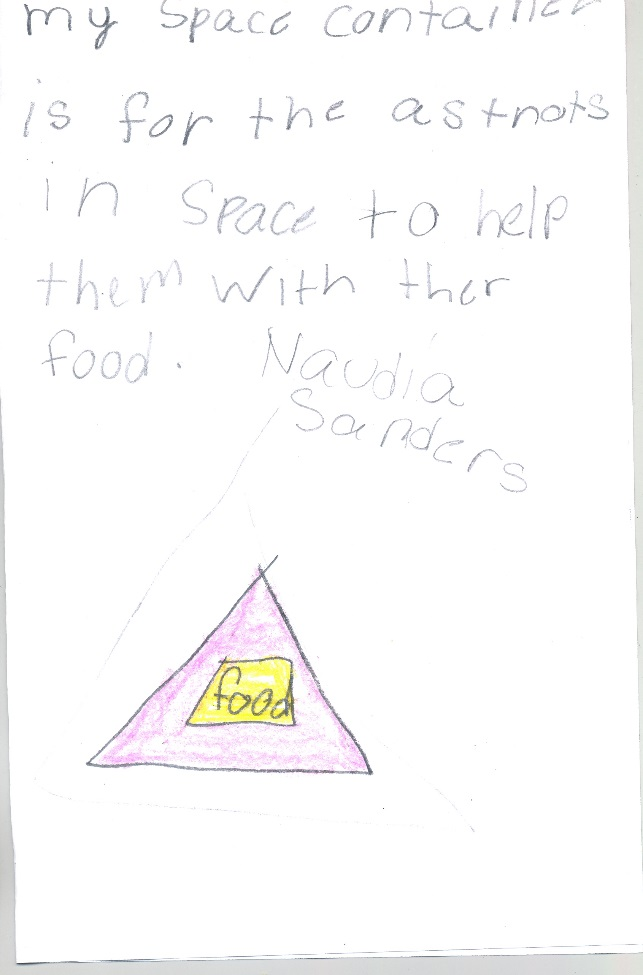 my Space container
is for the astnots
in Space to help
them with ther
food. Naudia
Sanders
food